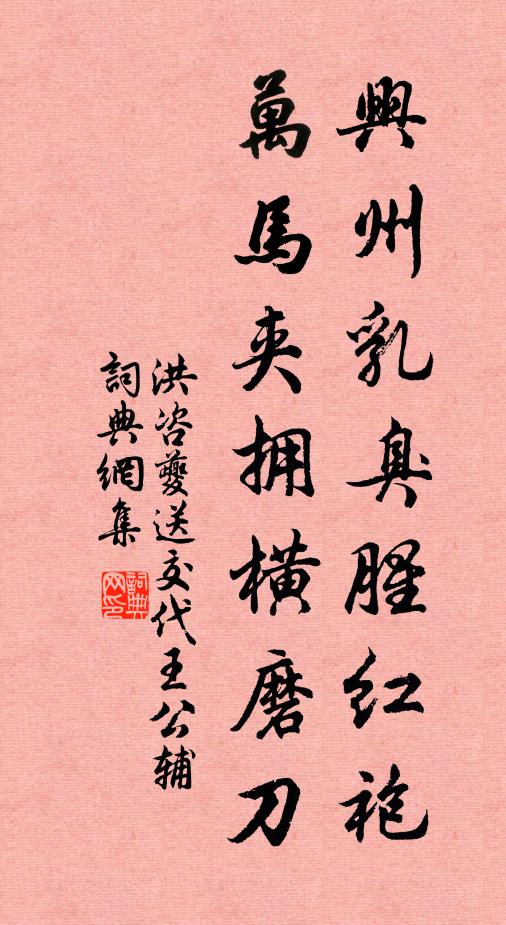 興州乳臭腥紅袍
萬馬夾拥橫磨刀
洪咨夔送交代王公辅
詞典網集
詞典网印